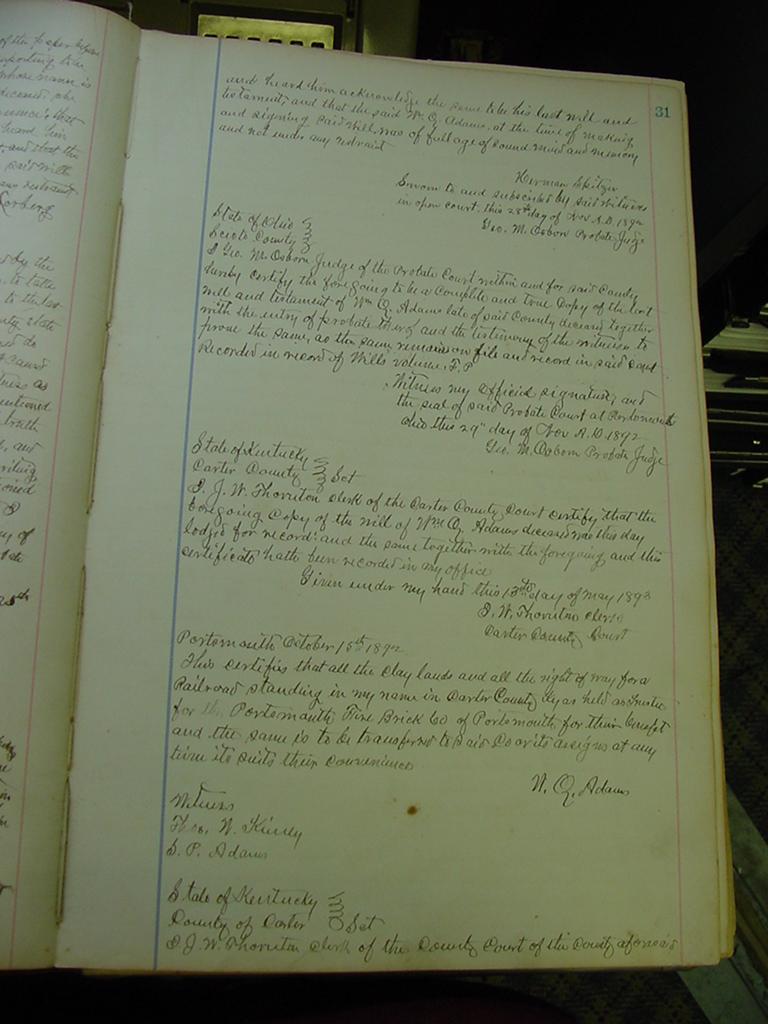 31
and heard him acknowledge the same to be his last will and
testament, and that the said Wm Q. Adams, at the time of making
and signing said will was of full age of sound mind and memory
and not under any restraint
Herman Spitzer
Sworn to and subscribed by said witness
in open court, this 28th day of Nov A.D. 1892
Geo. M. Osborn Probate Judge
State of Ohio
Scioto County
I Geo. M. Osborn Judge of the Probate Court within and for said County
hereby certify the foregoing to be a complete and true copy of the last
will and testament of Wm Q. Adams late of said County deceased together
with the entry of probate thereof and the testimony of the witnesses to
prove the same, as the same remains on file and record in said court
Recorded in record of Wills volume, F, P
Witness my official signature, and
the seal of said Probate Court at Portsmouth
Ohio this 29" day of Nov A.D. 1892
Geo. M. Osborn Probate Judge
State of Kentucky
Carter County Sct
I, J. W. Thornton clerk of the Carter County Court certify that the
foregoing copy of the will of Wm Q, Adams deceased was this day
lodged for record: and the same together with the foregoing and this
certificate hath been recorded in my office
Given under my hand this 13th day of May 1893
J. W. Thornton Clerk
Carter County Court
Portsmouth October 15th 1892
This certifies that all the clay lands and all the right of way for a
Railroad standing in my name in Carter County Ky as held as Trustee
for the Portsmouth Fire Brick Co of Portsmouth for their benefit
and the same is to be transferred to said Co or its assigns at any
time its suits their convenience
W. Q. Adams
Witness
Thos. W. Kinney
S. P. Adams
State of Kentucky
County of Carter Sct
I J. W. Thornton Clerk of the County Court of the County aforesaid